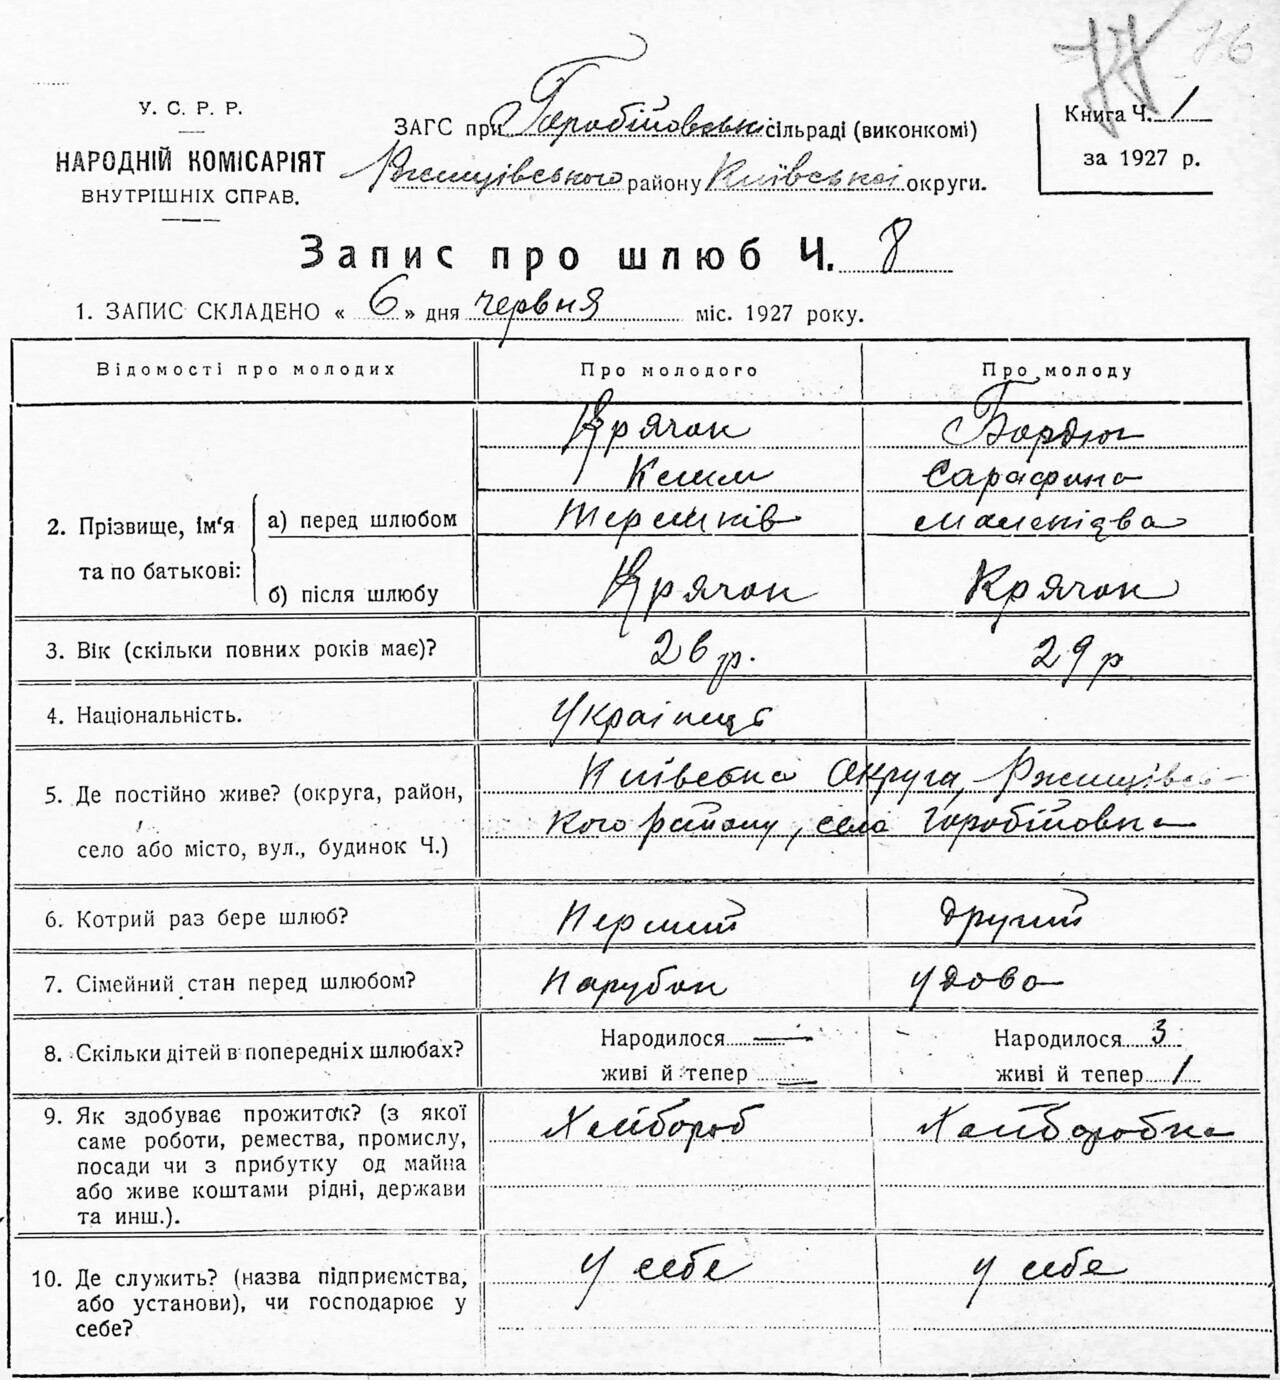 У. С. Р. Р.
НАРОДНІЙ КОМІСАРІЯТ
ВНУТРІШНІХ СПРАВ.
ЗАГС при Горобіївській сільраді (виконкомі)
Ржищівського району Київської округи.
Книга Ч. 1
за 1927 р.
Запис про шлюб Ч. 8
1. ЗАПИС СКЛАДЕНО « 6 » дня червня міс. 1927 року.
Відомості про молодих Про молодого Про молоду
2. Прізвище, ім'я та по батькові:
а) перед шлюбом
Крячок Бордюг
Клим
Терешків
б) після шлюбу Крячок Крячок
3. Вік (скільки повних років має)? 26 р. 29 р
4. Національність. Українці
5. Де постійно живе? (округа, район,
село або місто, вул., будинок Ч.)
Київська округа, Ржищівсь-
кого району, село Горобіївка
6. Котрий раз бере шлюб? Перший другий
7. Сімейний стан перед шлюбом? Парубок удова
8. Скільки дітей в попередніх шлюбах? Народилося — Народилося 3
живі й тепер — живі й тепер 1
9. Як здобуває прожиток? (з якої
саме роботи, ремества, промислу,
посади чи з прибутку од майна
або живе коштами рідні, держави
та инш.).
Хлібороб Хліборобка
10. Де служить? (назва підприємства,
або установи), чи господарює у
себе?
у себе у себе